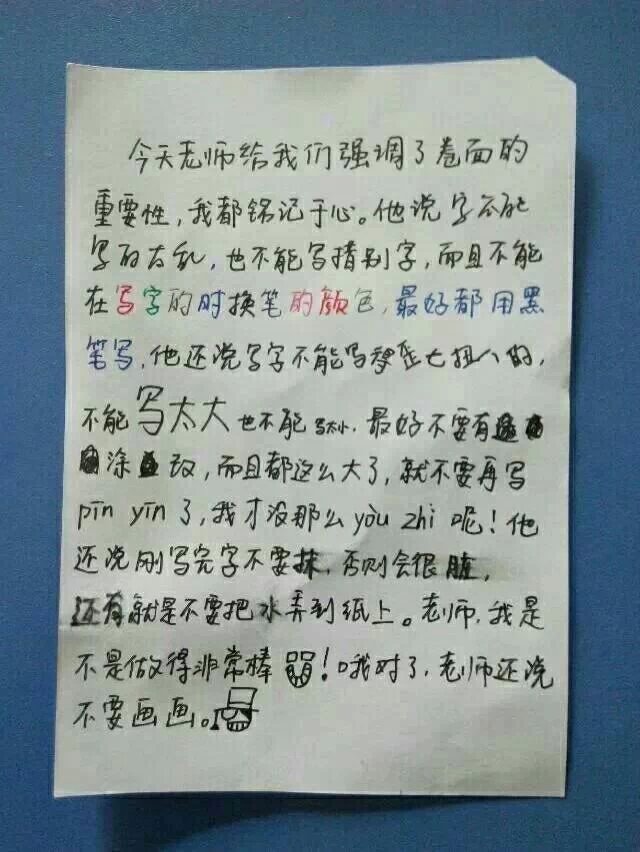 今天老师给我们强调了卷面的
重要性，我都铭记于心。他说字不能
写的太乱，也不能写错别字，而且不能
在写字的时换笔的颜色，最好都用黑
笔写，他还说写字不能写得歪七扭八的，
不能写太大也不能写太小，最好不要有
涂改，而且都这么大了，就不要再写
pīn yīn了，我才没那么yòu zhi呢！他
还说刚写完字不要抹，否则会很脏，
还有就是不要把水弄到纸上。老师，我是
不是做得非常棒！哦对了，老师还说
不要画画。